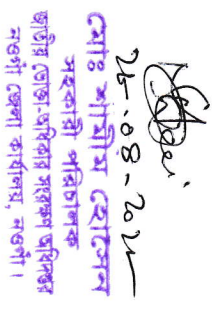 মোঃ শামীম হোসেন
সহকারী পরিচালক
জাতীয় ভোক্তা-অধিকার সংরক্ষণ অধিদপ্তর
নওগাঁ জেলা কার্যালয়, নওগাঁ।